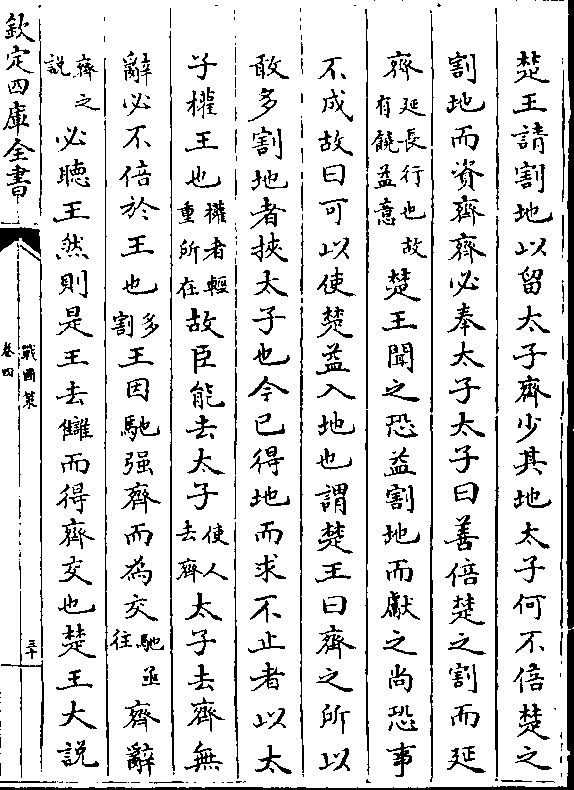 楚王請割地以留太子齊少其地太子何不倍楚之
割地而資齊齊必奉太子太子曰善倍楚之割而延
齊延長行也故有饒益意楚王聞之恐益割地而獻之尚恐事
不成故曰可以使楚益入地也謂楚王曰齊之所以
敢多割地者挾太子也今已得地而求不止者以太
子權王也權者輕重所在故臣能去太子使人去齊太子去齊無
辭必不倍於王也多割王因馳强齊而為交馳亟往齊辭
齊之說必聽王然則是王去讎而得齊交也楚王大說
欽定四庫全書
戰國策
卷四
三十